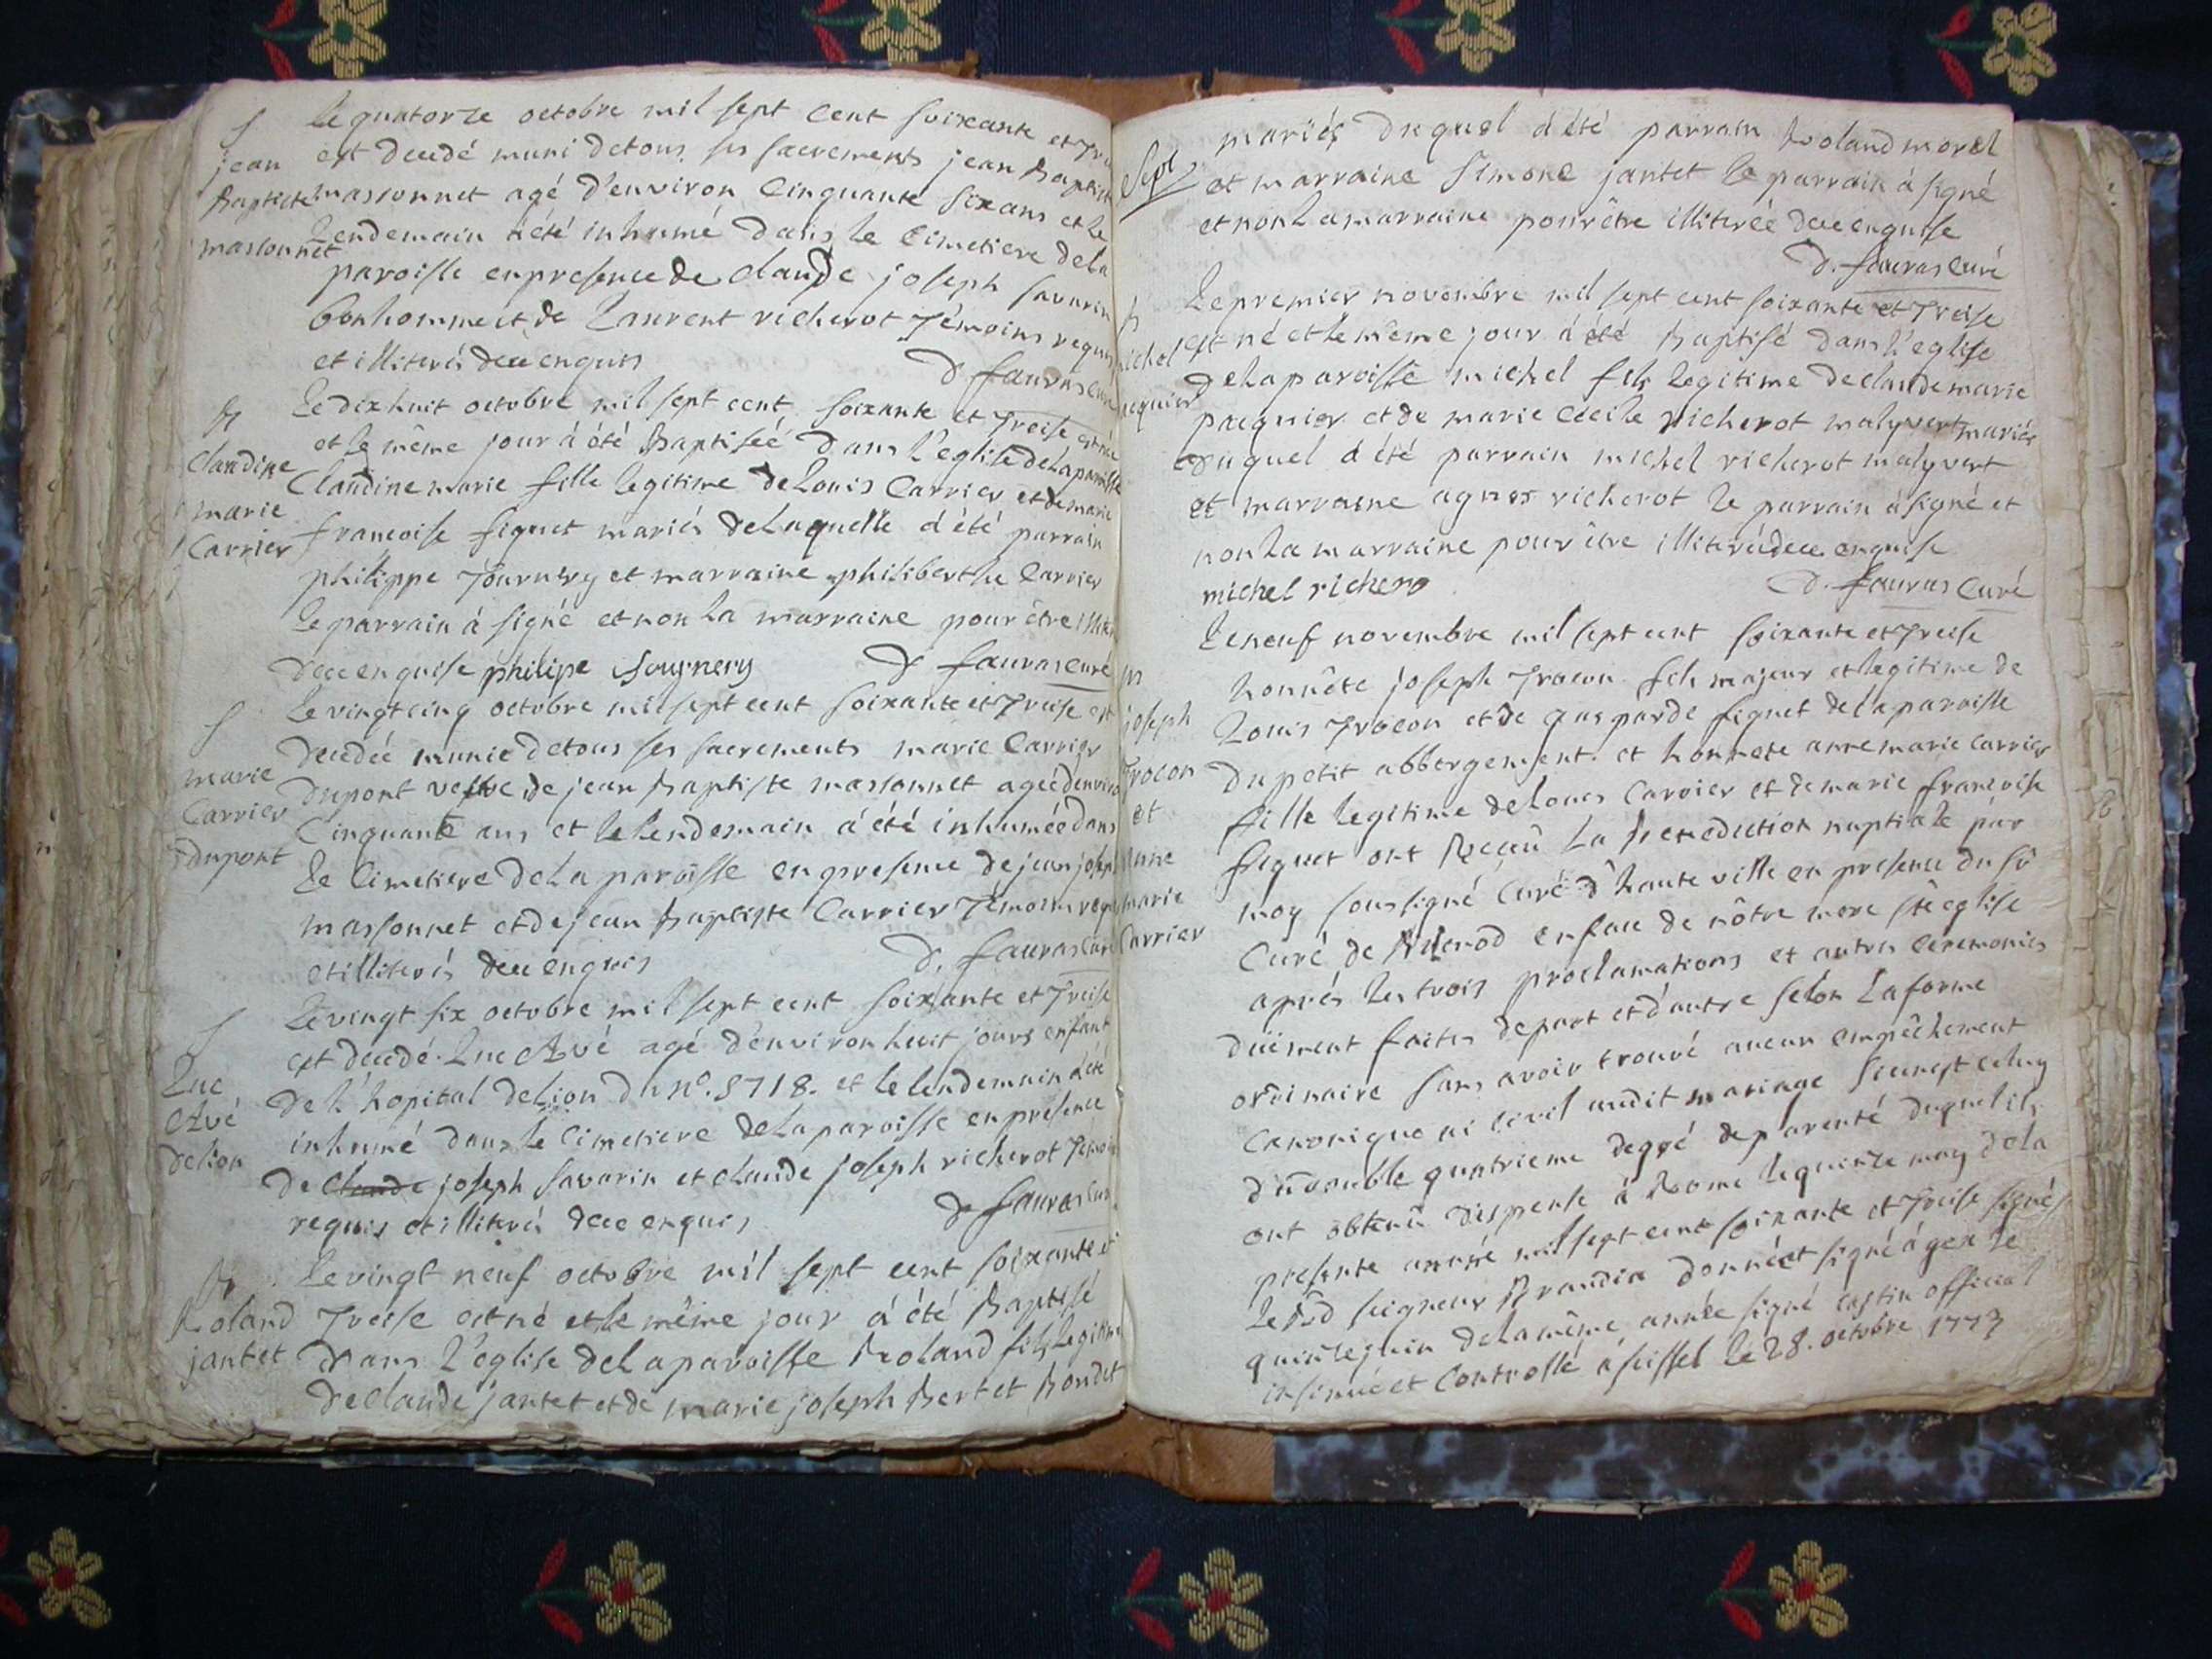 S
jean
Baptiste
massonnet
le quatorze octobre mil sept cent soixante et
est decedé muni de tous ses sacrements jean Baptiste
massonnet agé d'environ Cinquante six ans et le
Lendemain à été inhumé dans le Cimetiere de la
paroisse en presence de claude joseph savarin
bonhomme et de Laurent richerot Témoins requis
et illiterés de ce enquis
D fauras curé
B
Claudine
marie
Carrier
le dix huit octobre mil sept cent soixante et treise est née
et le même jour à été Baptiseé dans l'eglise de la paroisse
Claudine marie fille legitime de Louis Carrier et de marie
francoise figuet mariés de Laquelle à été parrain
philippe Tournery et marraine philiberthe Carrier
le parrain à signé et non la marraine pour être
de ce enquise philipe Tournery D fauras curé
S
marie
Carrier
dupont
le vingt cinq octobre mil sept cent soixante et treise est
decedée munie de tous ses sacrements marie Carrier
dupont veſve de jean Baptiste massonnet ageé d'environ
Cinquante ans et le lendemain à été inhumée dans
le Cimetiere de La paroisse en presence de jean joseph
massonnet et de jean Baptiste Carrier Témoins requis
et illiterés de ce enquis
D. fauras curé
S
Luc
Avé
de lion
le vingt six octobre mil sept cent soixante et treise
est decedé Luc Avé agé d'environ huit jours enfant
de L'hopital de lion du N°. 5718. et le lendemain à été
inhumé dans le Cimetiere de la paroisse en presence
de Claude joseph savarin et claude joseph richerot Témoins
requis et illiterés de ce enquis
D fauras curé
B
Roland
jantet
le vingt neuf octobre mil sept cent soixante et
treise est né et le même jour à été Baptisé
dans l'eglise de La paroisse Roland fils legitime
de claude jantet et de marie joseph Bertet Bondet
mariés duquel à été parrain Roland morel
et marraine simone jantet le parrain à signé
et non La marraine pour être illiterée de ce enquise
D. fauras Curé
B
michel
le premier novembre mil sept cent soixante et treise
est né et le même jour à été Baptisé dans l'eglise
de La paroisse michel fils legitime de claude marie
paquier et de marie cécile richerot malyvert mariés
duquel à été parrain michel richerot malyvert
et marraine agnes richerot le parrain à signé et
non La marraine pour être illiterée de ce enquise
michel richero D. fauras Curé
m
joseph
Trocon
et
Anne
marie
Carrier
le neuf novembre mil sept cent soixante et treise
honnête joseph Trocon fils majeur et legitime de
Louis Trocon et de gasparde figuet de la paroisse
du petit abbergement. et honnete anne marie Carrier
fille legitime de Louis Carrier et de marie francoise
figuet ont Receu La Benediction nuptiale par
moy soussigné Curé d'hauteville en presence du sr
Curé de en face de nôtre mere ste eglise
aprés les trois proclamations et autres Ceremonies
duëment faites de part et d'autre selon La forme
ordinaire sans avoir trouvé aucun empêchement
Canonique ni civil audit mariage si ce n'est celuy
d'un double quatrieme degré de parenté duquel ils
ont obtenu dispense à Rome le quinze may de la
presente année mil sept cent soixante et treise signés
le seigneur donné et signé à gex le
quinze juin de la même année signé official
insinué et Controllé à seissel le 28. octobre 1773